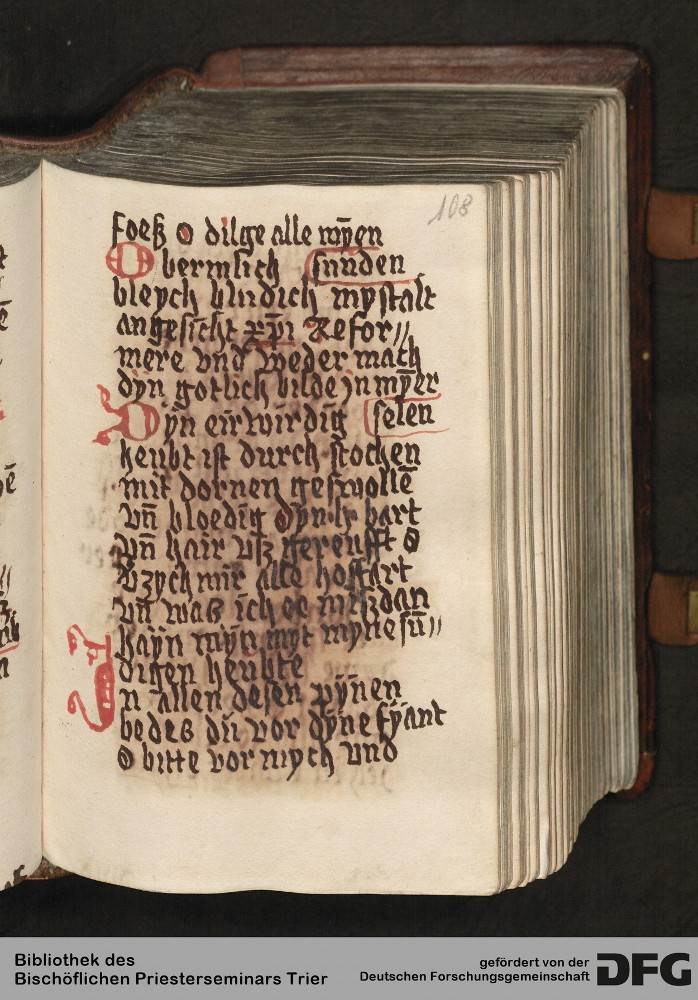 108
foeß O dilge alle mȳen
Obermlich sunden
bleych bludich mystalt
angesicht xp̄i Refor//
mere vnd weder mach
dyn gotlich bilde jn mȳer
Dÿn eirwirdig selen
heubt ist durch stochen
mit dornen geswollē
vn̄ bloedig dyn bart
vn̄ hair vß gerenfft O
vzych mir alle hoffart
vn̄ waß ich ee mißdan
hayn mÿn myt myne sū//
digen heubte
In allen desen pÿnen
bedes dū vor dȳne fÿant
O bitte vor mych vnd
Bibliothek des
Bischöflichen Priesterseminars Trier
gefördert von der
Deutschen Forschungsgemeinschaft
DFG